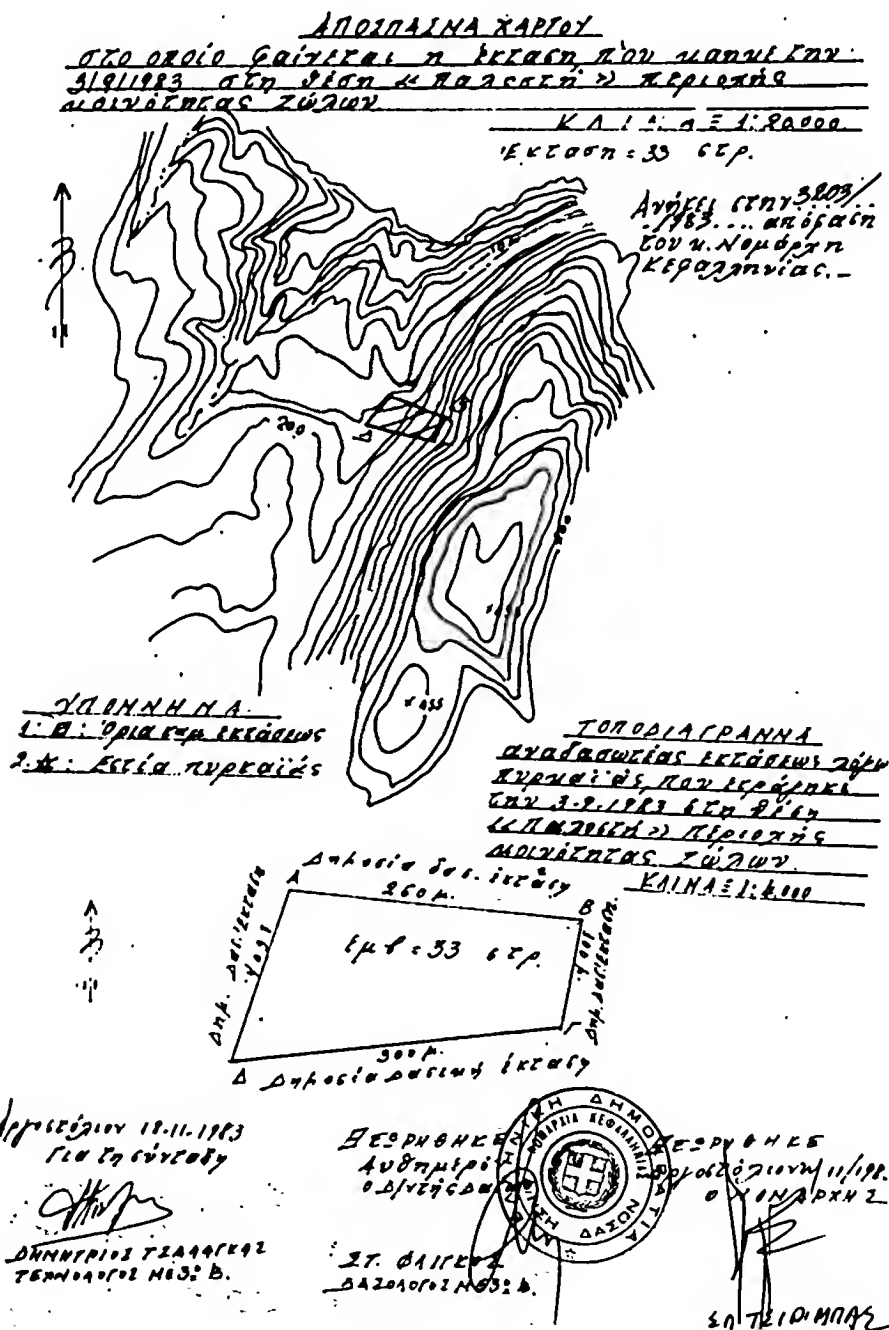 ΑΠΟΣΠΑΣΜΑ ΧΑΡΤΟΥ
στο οποίο φαίνεται η έκταση που κάηκε την
3/9/1983 στη θέση «Παλεστή» περιοχής
κοινότητας Ζώλων
ΚΛΙΜΑΞ 1:20.000
Έκταση = 33 στρ.
Ανήκει στην 3203/
1983 απόφαση
του κ. Νομάρχη
Κεφαλληνίας.-
200
Δ
455
ΥΠΟΜΝΗΜΑ
1: Όρια καμ. εκτάσεως
2: Εστία πυρκαϊάς
ΤΟΠΟΔΙΑΓΡΑΜΜΑ
αναδασωτέας εκτάσεως λόγω
πυρκαϊάς που εκράγηκε
την 3-9-1983 στη θέση
«Παλεστή» Περιοχής
κοινότητας Ζώλων.
ΚΛΙΜΑΞ 1:4.000
Δημοσία δασ. έκταση
260 μ.
Α
Β
Δημ. Δασ. έκταση
Εμβ = 33 στρ.
100 μ.
Δημ. Δασ. έκταση.
Γ
300 μ.
Δ
Δημοσία Δασική έκταση
Αργοστόλιον 18.11.1983
Για τη σύνταξη
ΔΗΜΗΤΡΙΟΣ ΤΣΑΛΑΓΚΑΣ
ΤΕΧΝΟΛΟΓΟΣ ΜΕ 3ο Β.
ΘΕΩΡΗΘΗΚΕ
Αυθημερό
ο Δ/ντής Δα
ΣΤ. ΦΛΙΓΚΟΣ
ΔΑΣΟΛΟΓΟΣ ΜΕ 3ο Β.
ΕΛΛΗΝΙΚΗ ΔΗΜΟΚΡΑΤΙΑ
ΝΟΜΑΡΧΙΑ ΚΕΦΑΛΛΗΝΙΑΣ
ΔΑΣΩΝ
ΘΕΩΡΗΘΗΚΕ
Αργοστόλιον /11/198.
Ο ΝΟΜΑΡΧΗΣ